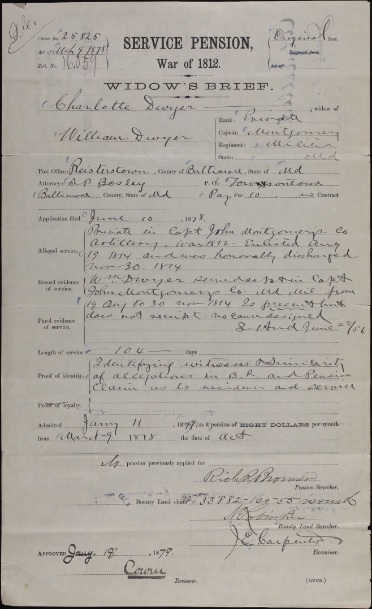 Claim No. 25,825
Act of Mch 9, 1878
Cert. No. 16,059
Original
SERVICE PENSION,
War of 1812.
WIDOW'S BRIEF.
Charlotte Dwyer, widow of
William Dwyer
Rank: Private
Captain: Montgomery
Regiment: Militia
State: Md
Post Office: Reisterstown, County of Baltimore, State of Md
Attorney: P Bosley P. O. Towsontown
Baltimore County, State of Md Fee, $ 10 and Contract
Application filed June 10, 1878.
Alleged service,
Private in Capt John Montgomerys Co
Artillery, War 1812. Enlisted Aug
19 1814 and was honorably discharged
Nov 30. 1814
Record evidence of service,
Wm Dwyer served as pvt in Capt
John Montgomerys Co Md Mil from
19 Aug to 30 Nov 1814 Is present but
does not receipt no cause assigned
Parol evidence of service,
3d Aud June
Length of service 104 days
Proof of identity,
Identifying witnesses & Similarity
of allegations in B.P. and Pension
Claim as to residence and service
Proof of loyalty:
Admitted Jany 11, 1879, to a pension of EIGHT DOLLARS per month
from March 9 1878 the date of Act
No pension previously applied for
Pension Searcher.
Bounty Land claim 33882-160-55
Bounty Land Searcher.
J E Carpenter
Examiner.
APPROVED Jany 1879.
Reviewer.
(OVER.)